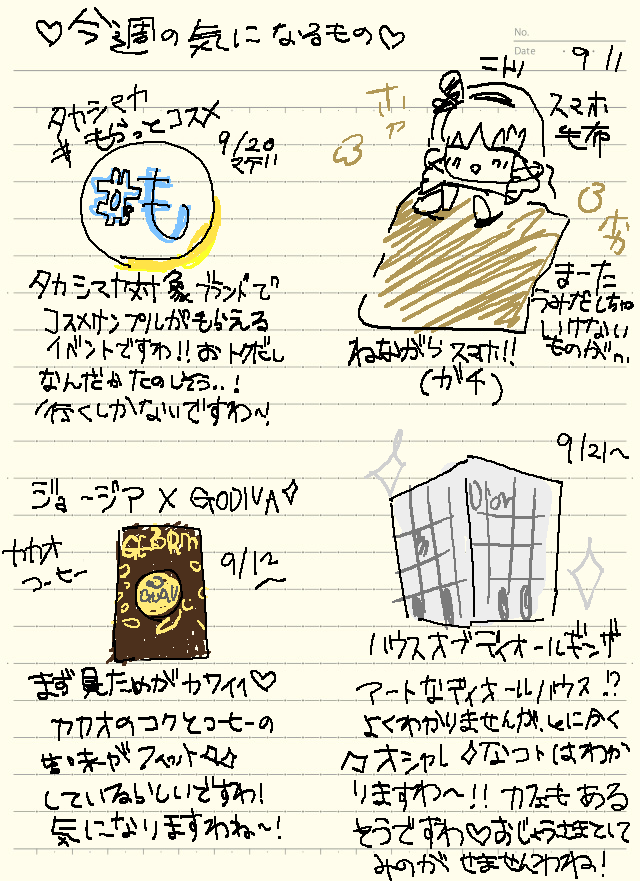 ♡今週の気になるもの♡
No.
Date
9 11
タカシマヤ
#もらっとコスメ
9/20
マデ!!
#も
タカシマヤ対象ブランドで
コスメサンプルがもらえる
イベントですわ!!おトクだし
なんだかたのしそう..!
行くしかないですわ~!
ニトリ
スマホ
毛布
ポカ
ポカ
まーた
うみだしちゃ
いけない
ものが…
ねながらスマホ!!
(ガチ)
ジョージア×GODIVA
カカオ
コーヒー
9/12~
まず見ためがカワイイ♡
カカオのコクとコーヒーの
苦味がフィット
しているらしいですわ!
気になりますわね~!
9/21~
Dior
ハウスオブディオールギンザ
アートなディオールハウス!?
よくわかりませんが、とにかく
オシャレなコトはわか
りますわ~!!カフェもある
そうですわ♡おじょうさまとして
みのがせませんわね!